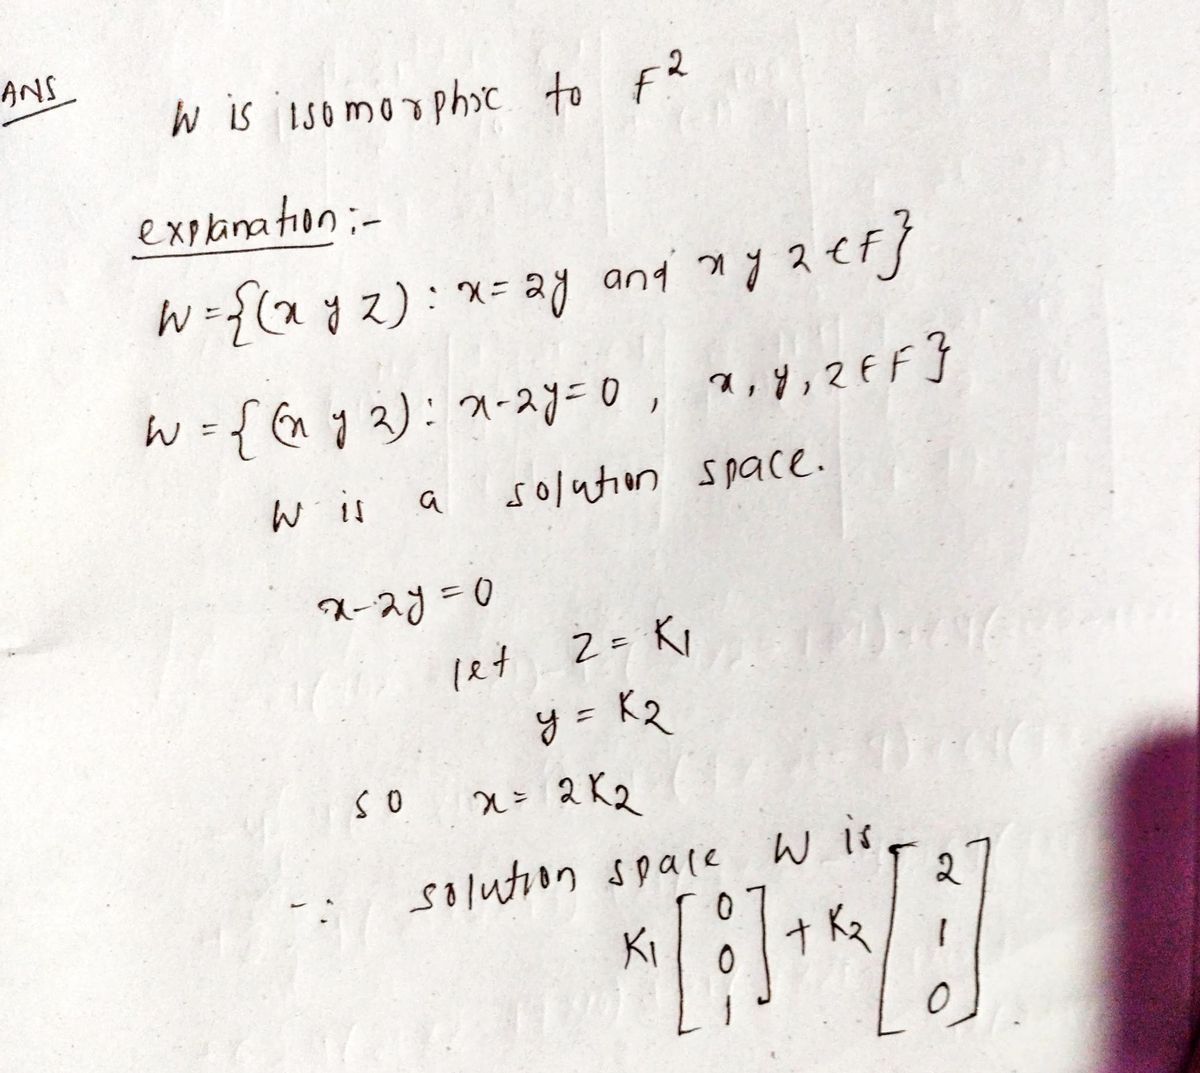 ANS
W is isomorphic to F²
explanation :-
W = {(x y z) : x = 2y and x y z ∈ F}
W = {(x y z) : x-2y = 0 , x, y, z ∈ F}
W is a solution space.
x-2y = 0
let z = K1
y = K2
so x = 2K2
∴ solution space W is
K1 [0 0 1] + K2 [2 1 0]